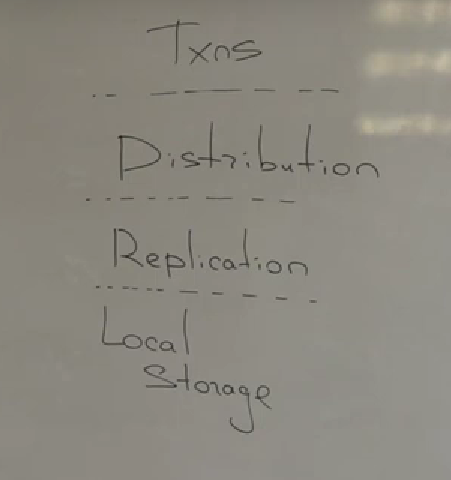 Txns
Distribution
Replication
Local
Storage